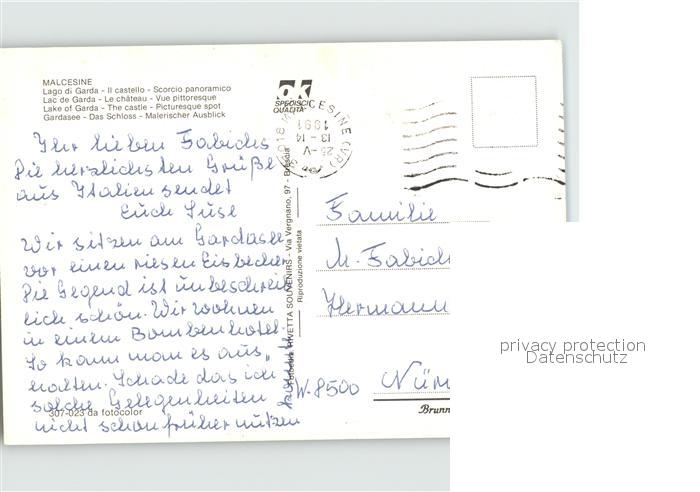 MALCESINE
Lago di Garda - Il castello - Scorcio panoramico
Lac de Garda - Le château - Vue pittoresque
Lake of Garda - The castle - Picturesque spot
Gardasee - Das Schloss - Malerischer Ausblick
ok
SPEDISCI
QUALITÀ
CESINE (VR)
25-V
13-14
1991
Ihr lieben Fabichs
Die herzlichsten Grüße
aus Italien sendet
Euch Suse
Wir sitzen am Gardasee
vor einen riesen Eisbecher
Die Gegend ist unbeschreib
lich schön. Wir wohnen
in einem Bombenhotel.
So kann man es aus„
halten. Schade das ich
solche Gelegenheiten
nicht schon früher nutzen
307-023 da fotocolor
RIVETTA SOUVENIRS - Via Vergnano, 97 - Brescia
Riproduzione vietata
Familie
M. Fabich
Hermann
W-8500 Nürn
Brunn
privacy protection
Datenschutz